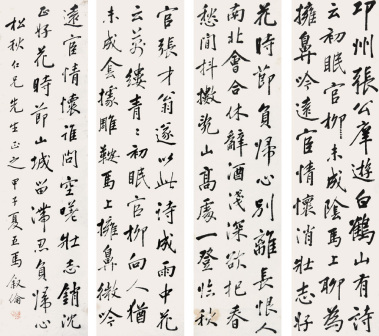 邛州張公庠遊白鶴山有詩
云初眠官柳未成陰馬上聊為
擁鼻吟遠宦情懷消壯志好
花時節負歸心別離長恨人
南北會合休辭酒淺深欲把春
愁閒抖擻亂山高處一登臨秋
官張才翁遂以此詩成雨中花
云萬縷青青初眠官柳向人猶
未成陰據雕鞍馬上擁鼻微吟
遠宦情懷誰問空嗟壯志銷沈
正好花時節山城留滯忍負歸心
松秋仁兄先生正之 甲子夏五馬敘倫